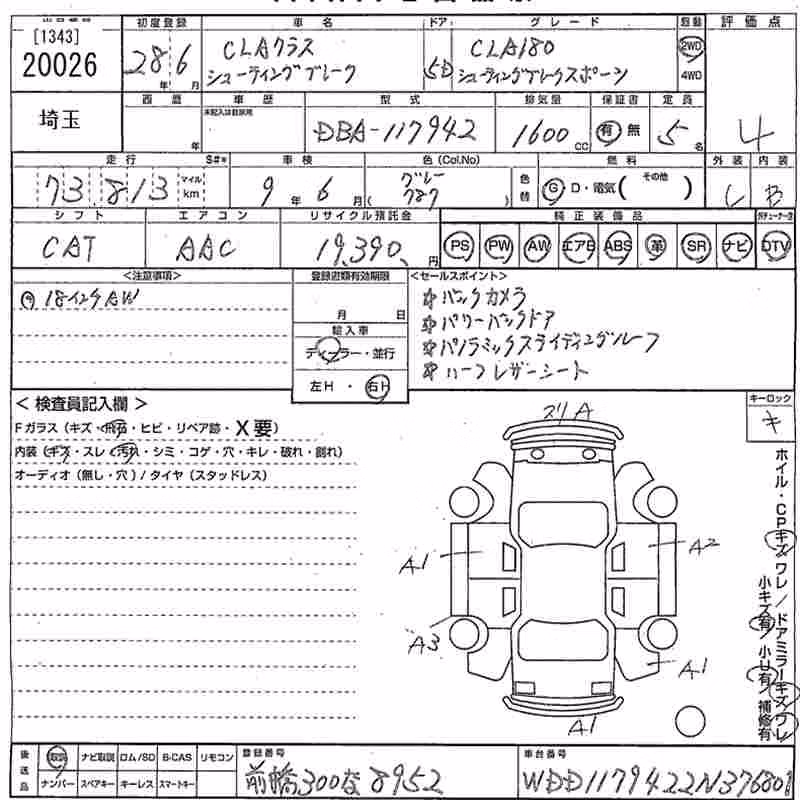 出品番号 初度登録 車名 ドア グレード 駆動 評価点
[1343]
20026
28年 6月
CLAクラス
シューティングブレーク
5D
CLA180
シューティングブレークスポーツ
2WD
4WD
4
埼玉
西暦 車歴 型式 排気量 保証書 定員
年
未記入は自家用
DBA-117942
1600cc
有 無
5名
走行 S#* 車検 色(Col.No) 燃料 外装 内装
73,813 マイル km
9年 6月
グレー
(787)
色替
G・D・電気( その他 )
C B
シフト エアコン リサイクル預託金 純正装備品
CAT
AAC
19,390,円
PS PW AW エアB ABS 革 SR ナビ DTV
<注意事項>
18インチAW
登録書類有効期限
月 日
輸入車
ディーラー・並行
左H・右H
<セールスポイント>
*バックカメラ
*パワーバックドア
*パノラミックスライディングルーフ
*ハーフレザーシート
<検査員記入欄>
Fガラス(キズ・飛石・ヒビ・リペア跡・X要)
内装(キズ・スレ・汚れ・シミ・コゲ・穴・キレ・破れ・割れ)
オーディオ(無し・穴)/タイヤ(スタッドレス)
キーロック
キ
スリA
A1
A2
A3
A1
A1
ホイル・CPキズワレ/ドアミラーキズワレ
小キズ有/小U有/補修有
後送品
取説 ナビ取説 ROM/SD B-CAS リモコン
ナンバー スペアキー キーレス スマートキー
登録番号
前橋300な8952
車台番号
WDD1179422N376801